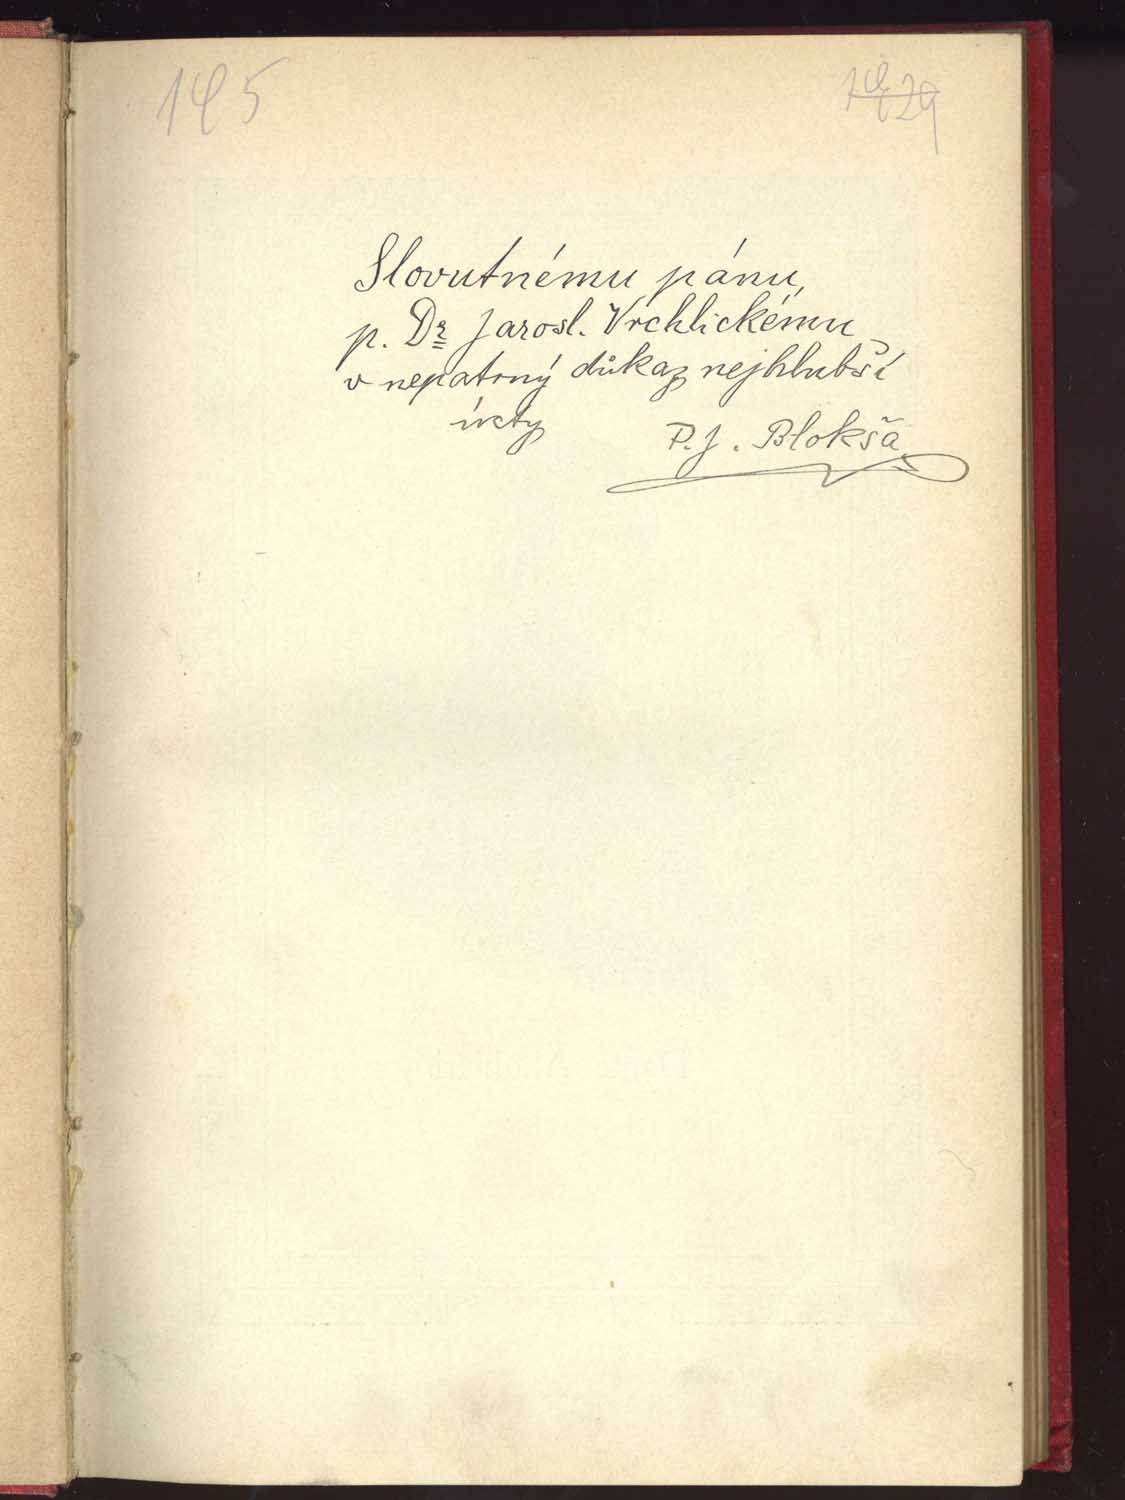 Slovutnému pánu,
p. Dr Jarosl. Vrchlickému
v nepatrný důkaz nejhlubší
úcty
P. J. Blokša